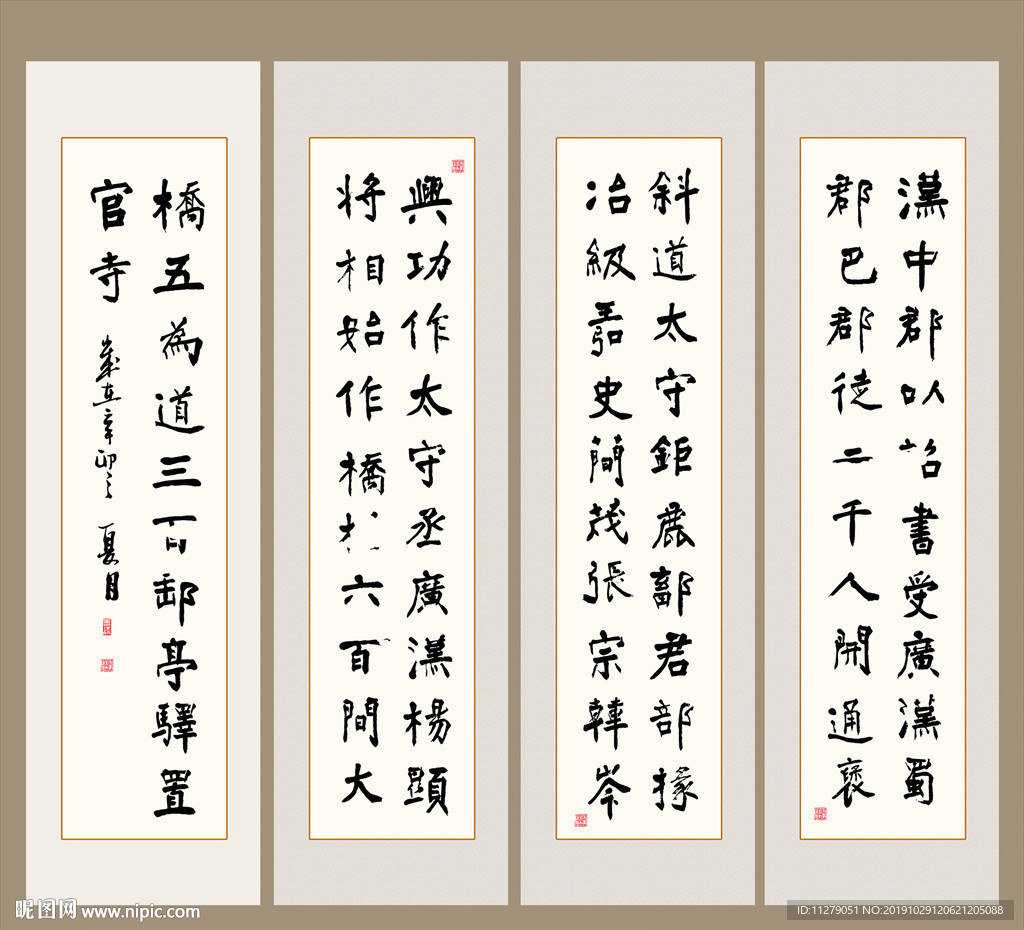 漢中郡以詔書受廣漢蜀
郡巴郡徒二千人開通褒
斜道太守鉅鹿鄐君部掾
冶級
史
茂張宗韓岑
興功作太守丞廣漢楊顯
将相始作橋
六百間大
橋五為道三百
郵亭驛置
官寺
辛卯之
夏月
昵图网 www.nipic.com
ID:11279051 NO:20191029120621205088